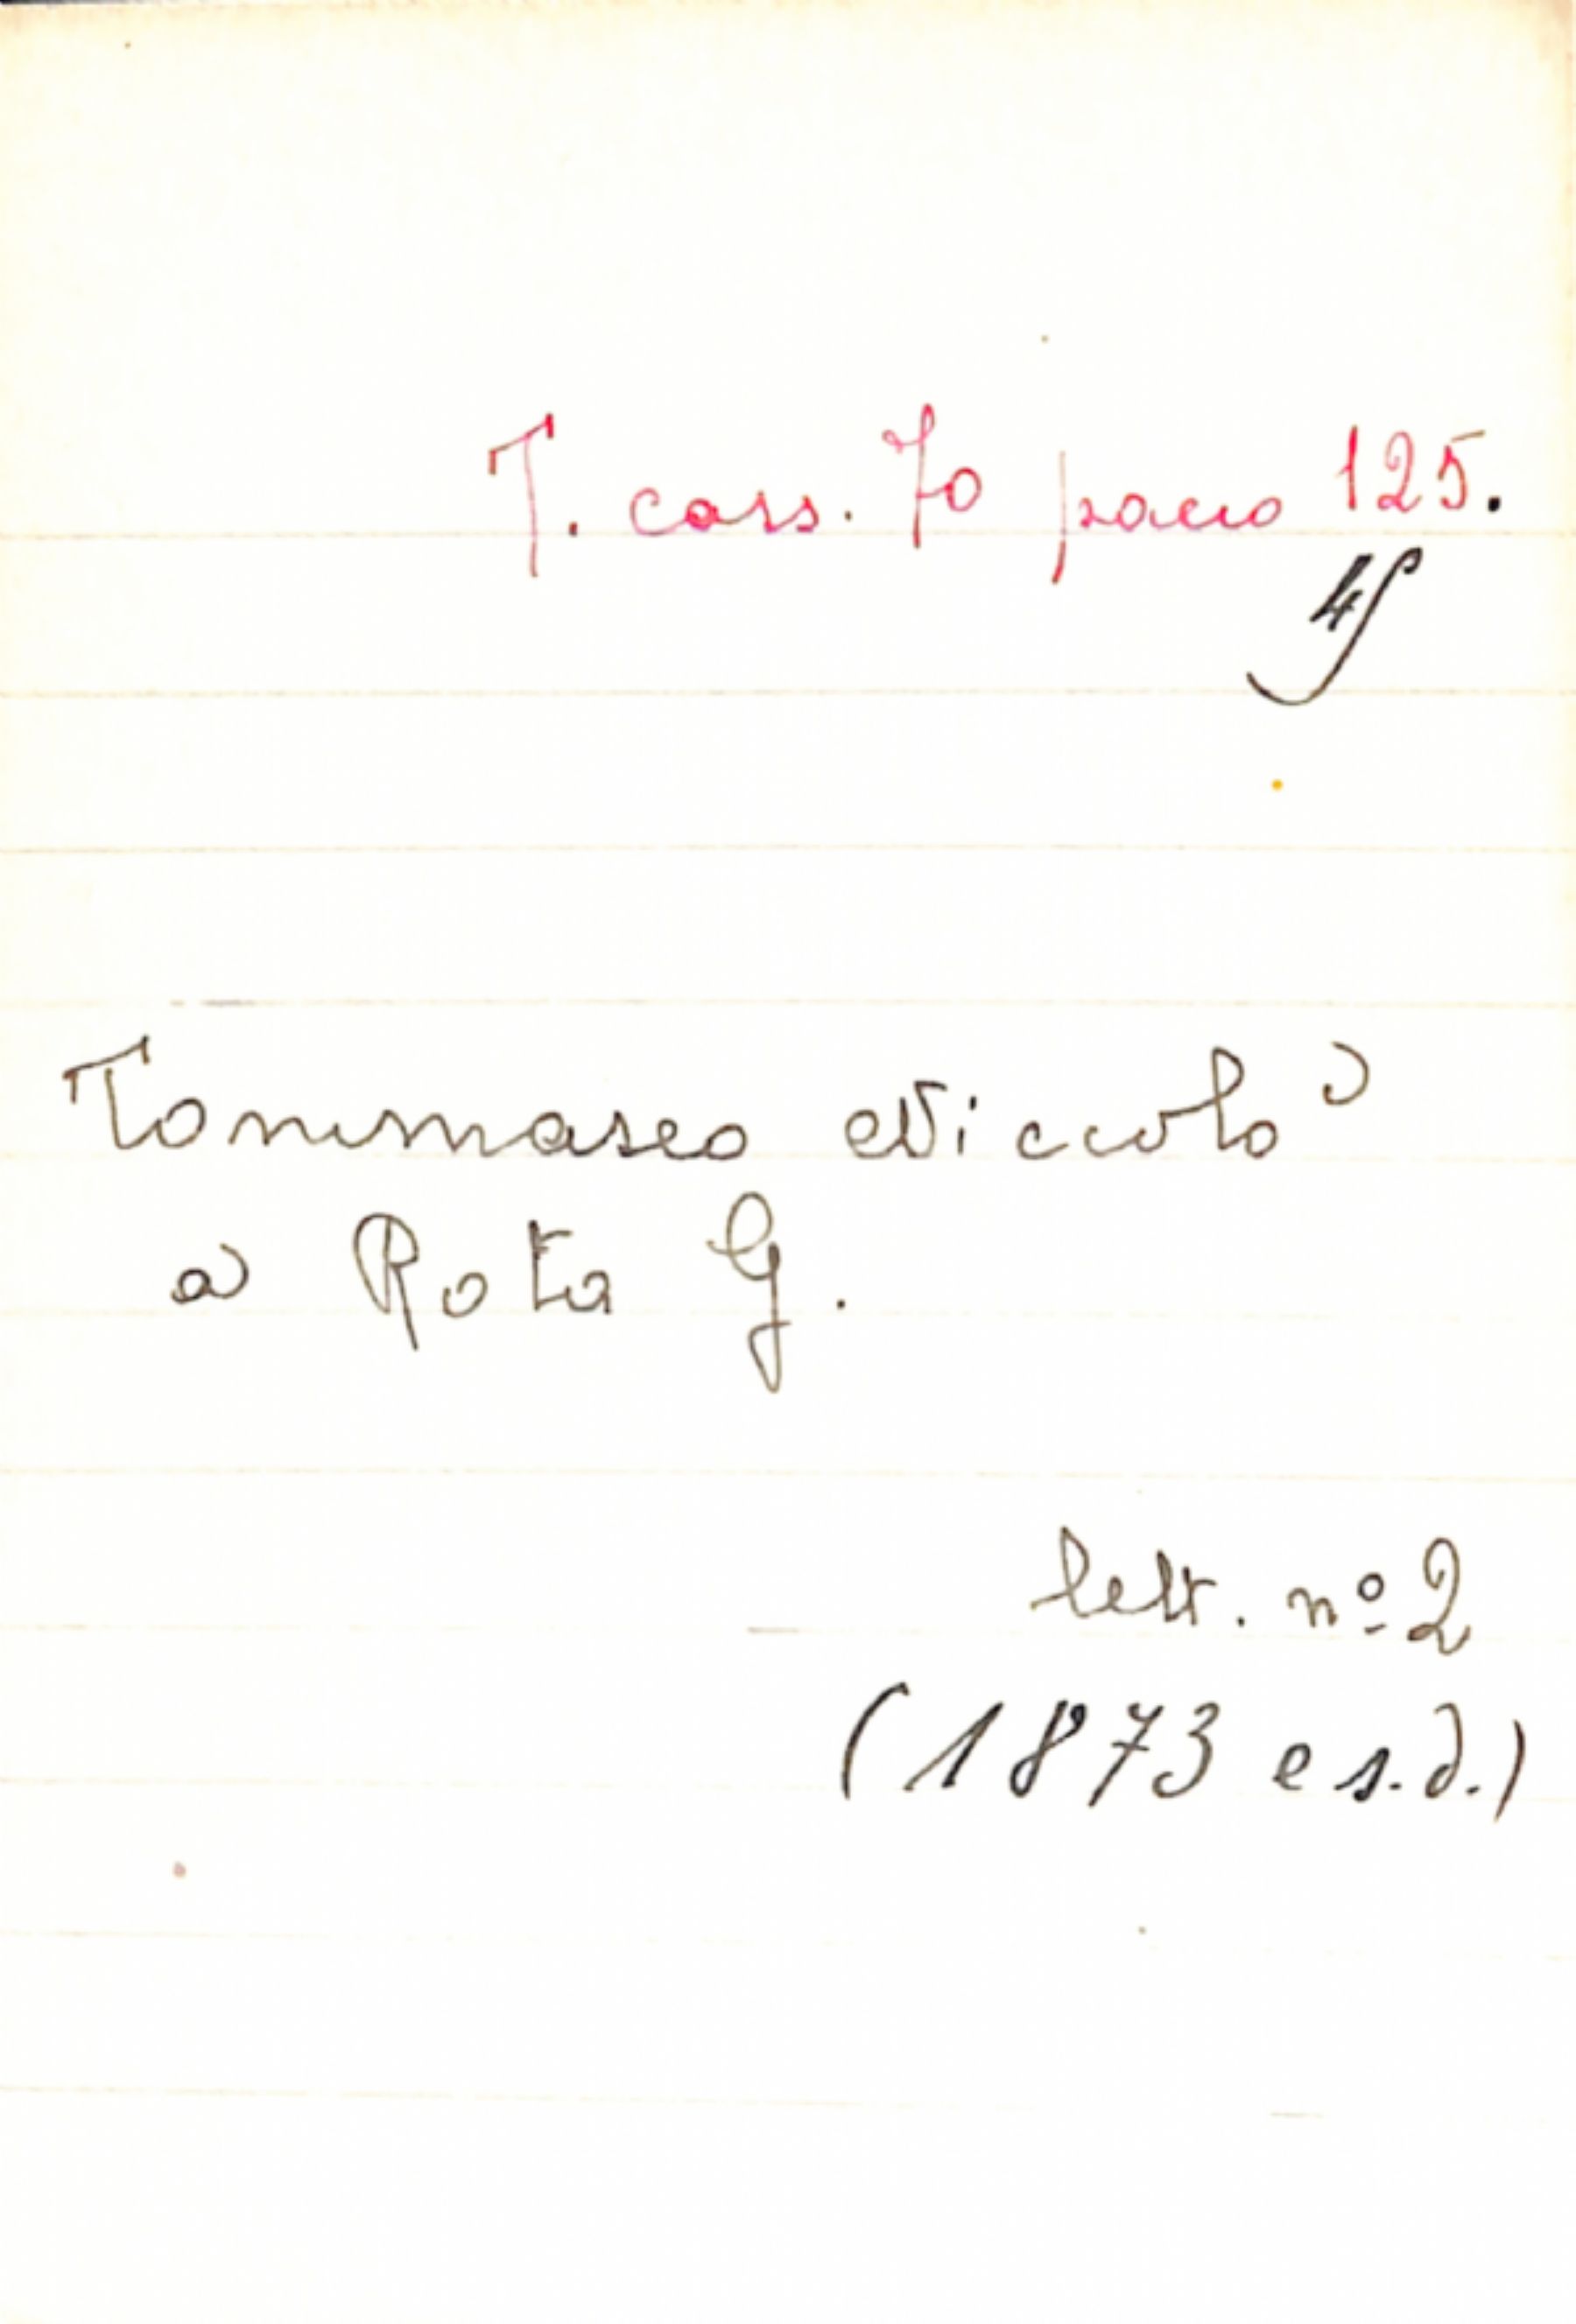 T. cass. 70 pacco 125.
45
Tommaseo Niccolò
a Rota G.
lett. nº 2
(1873 e s.d.)